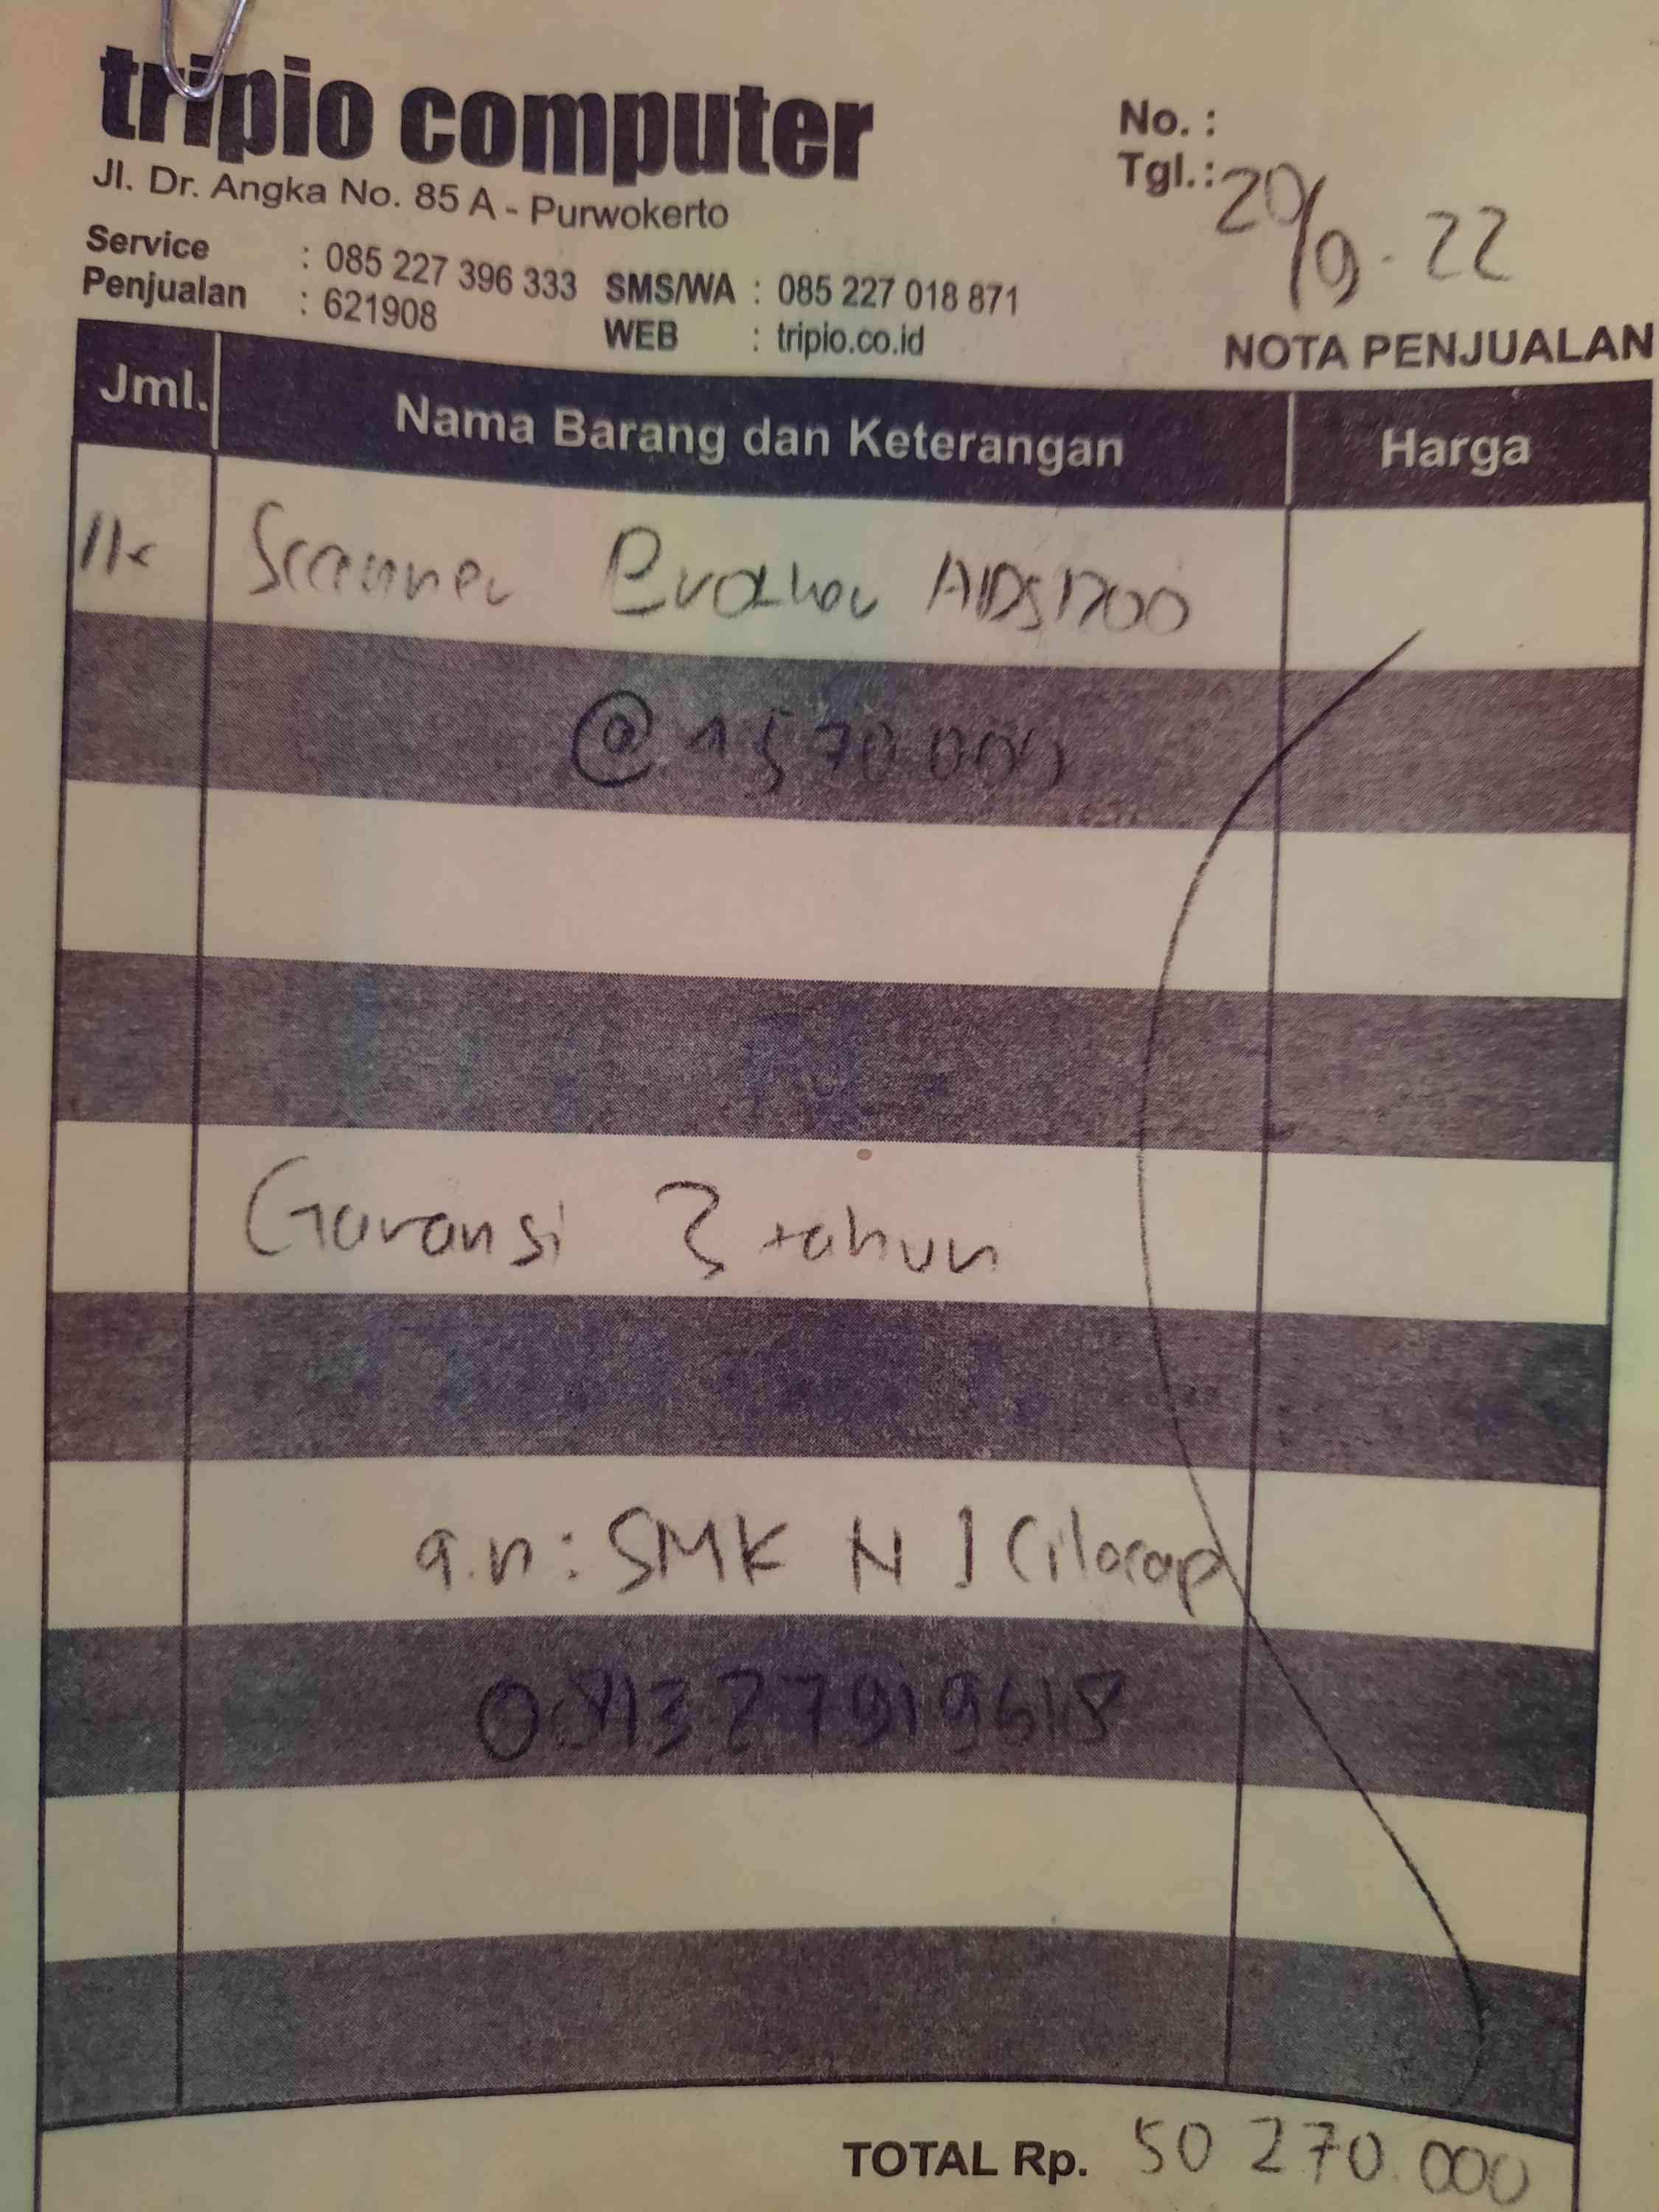 tripio computer
Jl. Dr. Angka No. 85 A - Purwokerto
Service : 085 227 396 333 SMS/WA : 085 227 018 871
Penjualan : 621908 WEB : tripio.co.id
No. :
Tgl.: 20/9-22
NOTA PENJUALAN
Jml. Nama Barang dan Keterangan Harga
11x Scanner Brother ADS1700
@ 4 570 000
Garansi 3 tahun
a.n : SMK N 1 Cilacap
0813 27919618
TOTAL Rp. 50 270.000